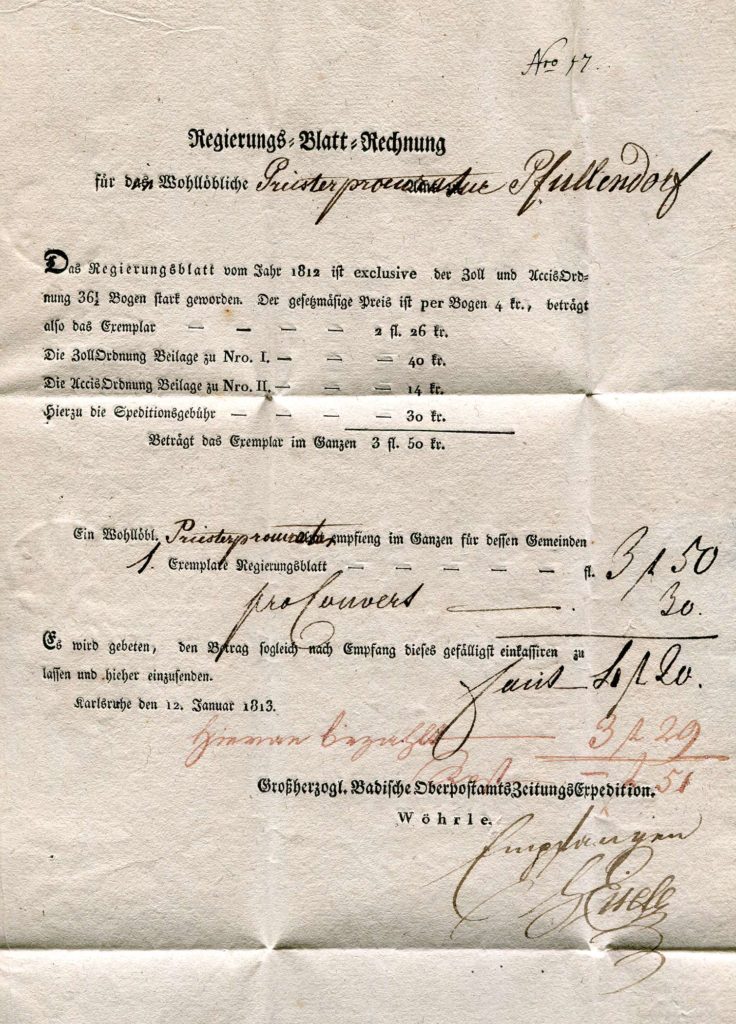 Nro 17.
Regierungs-Blatt-Rechnung
für das Wohllöbliche Priesterprocuratur Pfullendorf
Das Regierungsblatt vom Jahr 1812 ist exclusive der Zoll und AccisOrd-
nung 36½ Bogen stark geworden. Der gesetzmäsige Preis ist per Bogen 4 kr., beträgt
also das Exemplar — — — — 2 fl. 26 kr.
Die ZollOrdnung Beilage zu Nro. I. — — — 40 kr.
Die AccisOrdnung Beilage zu Nro. II. — — — 14 kr.
Hierzu die Speditionsgebühr — — — — 30 kr.
Beträgt das Exemplar im Ganzen 3 fl. 50 kr.
Ein Wohllöbl. empfieng im Ganzen für dessen Gemeinden
1. Exemplare Regierungsblatt — — — — — — fl. 3 f 50
pro Couvert — . 30.
Es wird gebeten, den Betrag sogleich nach Empfang dieses gefälligst einkassiren zu
lassen und hieher einzusenden.
facit 4 f 20.
Karlsruhe den 12. Januar 1813.
Hieran bezahlt — 3 f 29
Rest — — f 51
Großherzogl. Badische OberpostamtsZeitungsExpedition.
Wöhrle.
Empfangen
Eisele